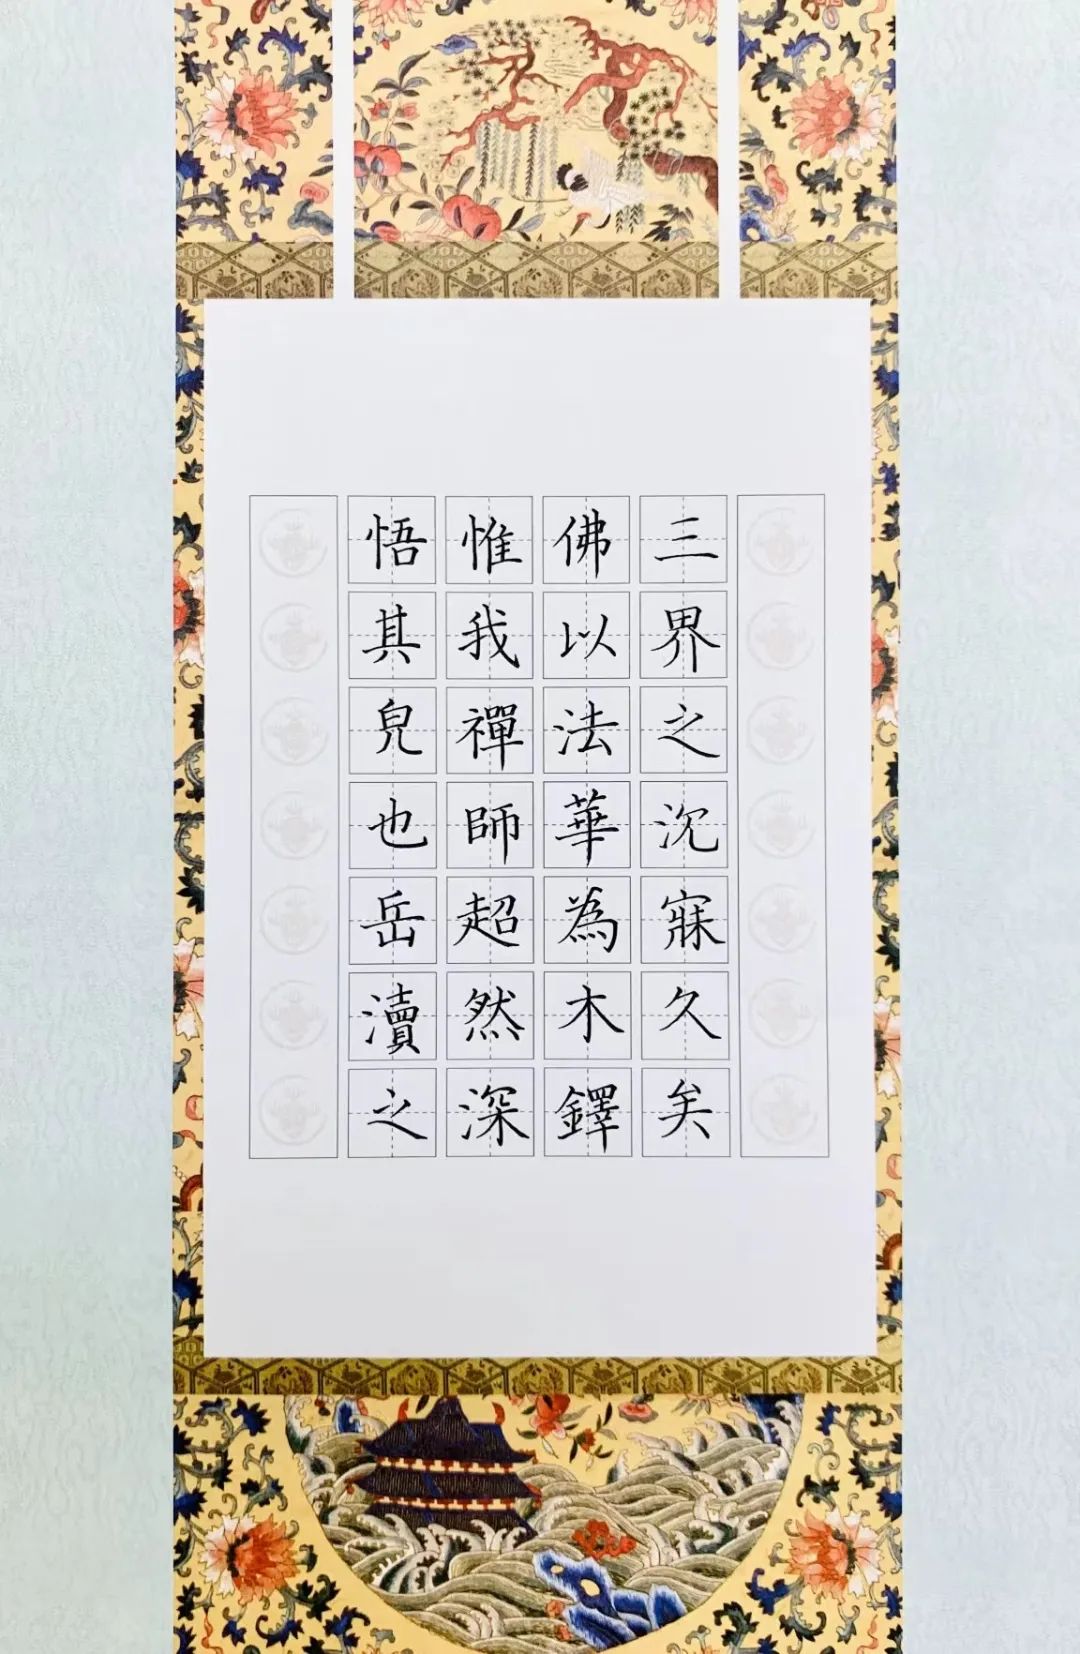 三界之沉寐久矣
佛以法華為木鐸
惟我禪師超然深
悟其皃也岳瀆之